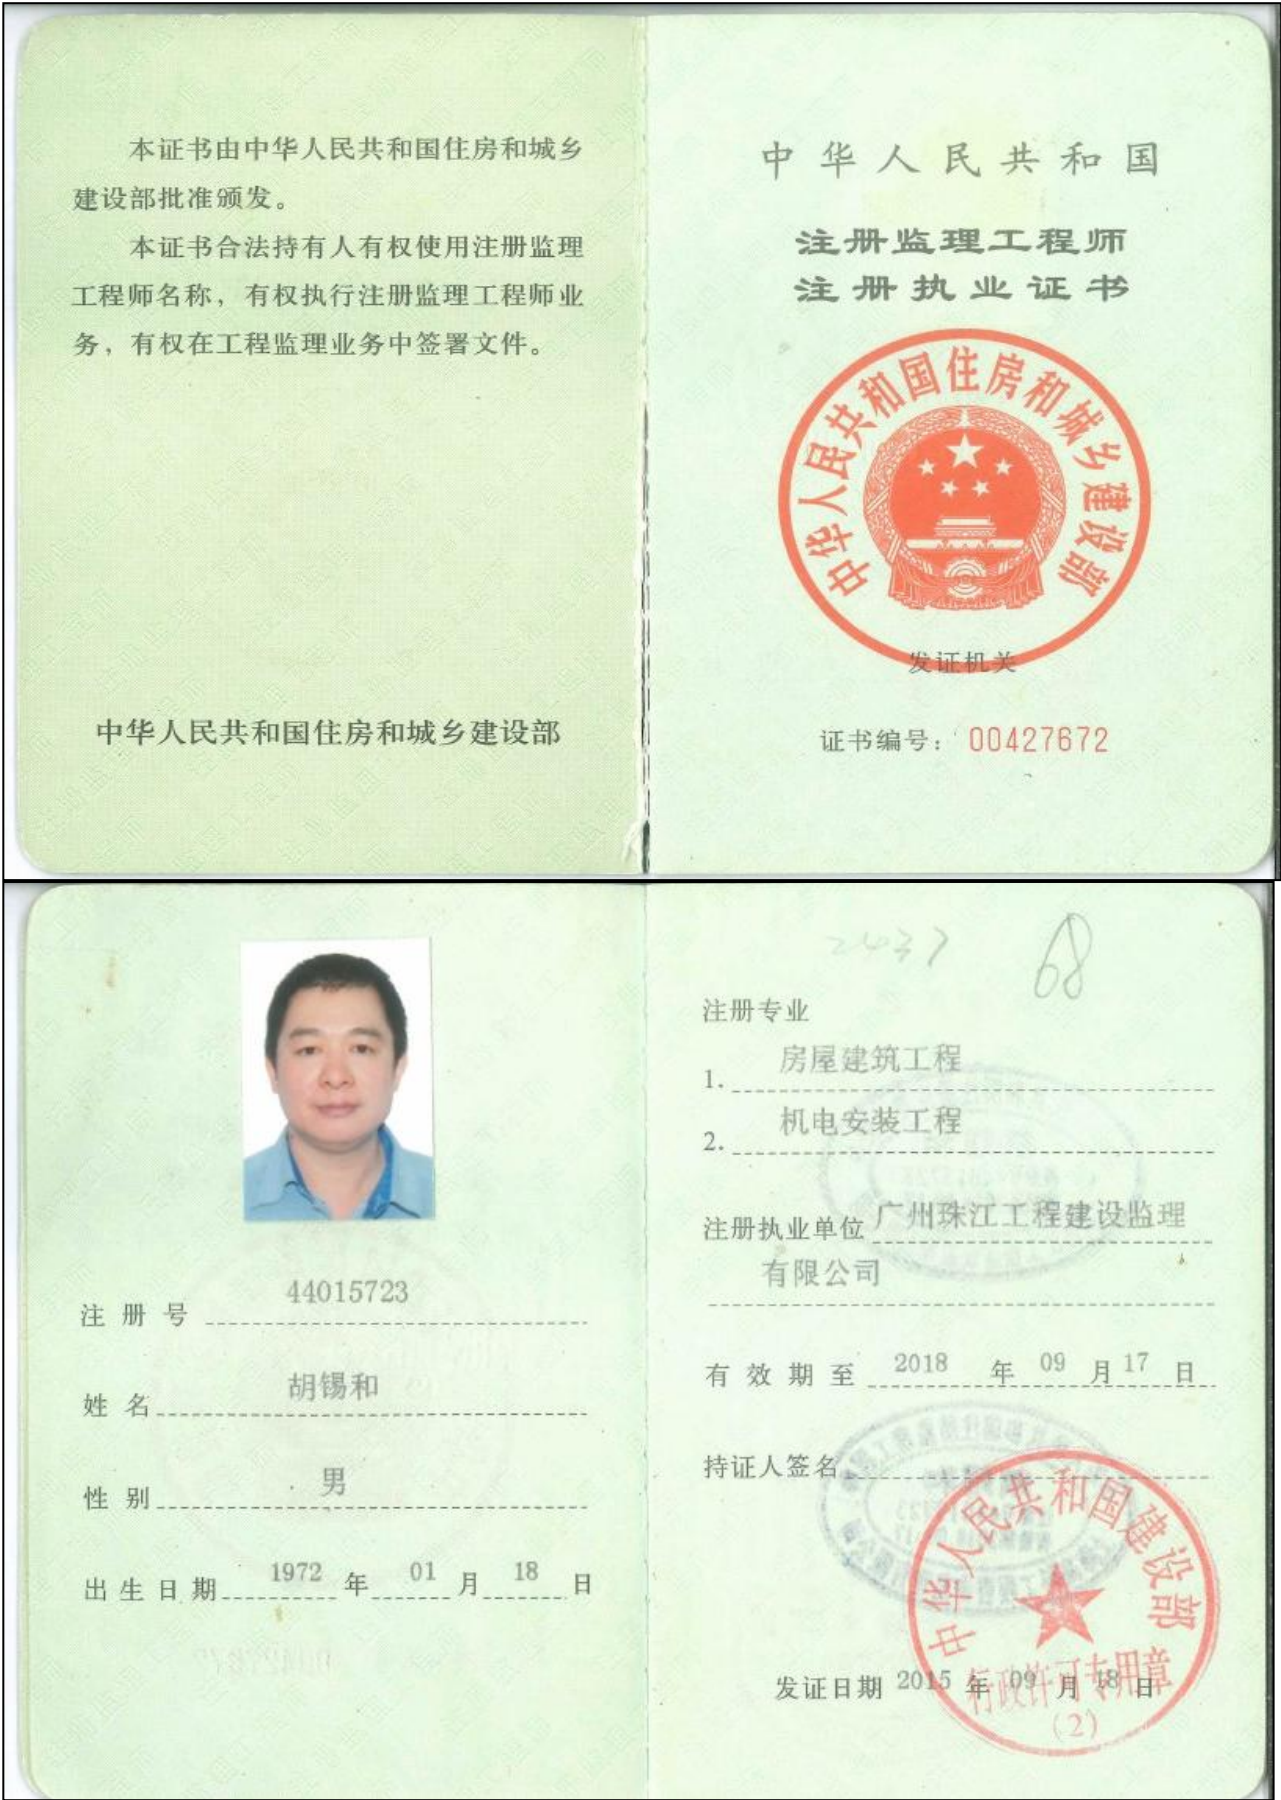 本证书由中华人民共和国住房和城乡
建设部批准颁发。
本证书合法持有人有权使用注册监理
工程师名称，有权执行注册监理工程师业
务，有权在工程监理业务中签署文件。
中华人民共和国住房和城乡建设部
中华人民共和国
注册监理工程师
注册执业证书
中华人民共和国住房和城乡建设部
发证机关
证书编号：00427672
注册号 44015723
姓名 胡锡和
性别 男
出生日期 1972 年 01 月 18 日
2437 68
注册专业
1. 房屋建筑工程
2. 机电安装工程
注册执业单位 广州珠江工程建设监理
有限公司
有效期至 2018 年 09 月 17 日
持证人签名
中华人民共和国建设部
行政许可专用章
(2)
发证日期 2015 年 09 月 18 日